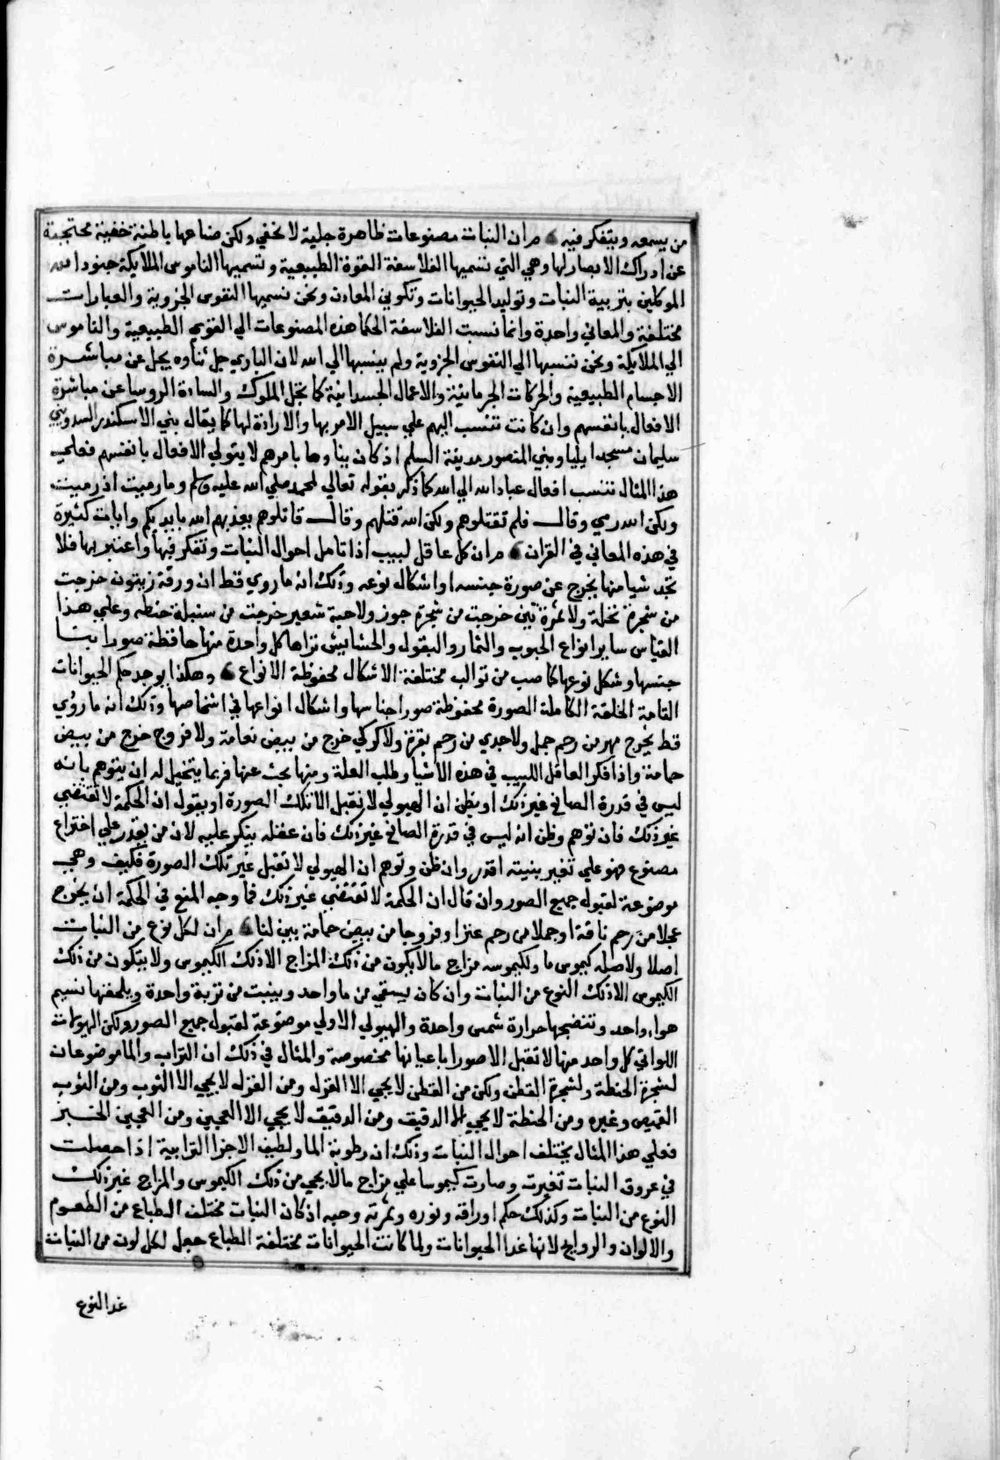 من يسمعه ويتفكر فيه ۞ مر ان النبات مصنوعات ظاهرة جلية لا تخفي ولكن صناعها باطنة خفية محتجبة
عن ادراك الابصار لها وهي التي تسميها الفلاسفة القوة الطبيعية وتسميها الناموس الملايكة وجنود الله
الموكلين بتربية النبات وتوليد الحيوانات وتكوين المعادن ونحن نسميها النفوس الجزوية والعبارات
مختلفة والمعاني واحدة وانما نسبت الفلاسفة الحكما هذه المصنوعات الي القوي الطبيعية والناموس
الي الملايكة ونحن ننسبها الي النفوس الجزوية ولم ينسبها الي الله لان الباري جل ثناوه يجل عن مباشرة
الاجسام الطبيعية والحركات الجرمانية والاعمال الجسدانية كما تجل الملوك والسادة الروسا عن مباشرة
الافعال بانفسهم وان كانت تنسب اليهم علي سبيل الامر بها والارادة لها كما يقال بني الاسكندر السد وبني
سليمان مسجد ايليا وبني المنصور مدينة السلم اذ كان بناوها بامرهم لا يتولي الافعال بانفسهم فعلي
هذا المثال تنسب افعال عباد الله الي الله كما ذكر بقوله تعالي لمحمد صلي الله عليه وسلم وما رميت اذ رميت
ولكن الله رمي وقال فلم تقتلوهم ولكن الله قتلهم وقال قاتلوهم يعذبهم الله بايديكم وايات كثيرة
في هذه المعاني في القران ۞ مر ان كل عاقل لبيب اذا تامل احوال النبات وتفكر فيها واعتبر بها فلا
تجد شيا منها يخرج عن صورة جنسه او اشكال نوعه وذلك انه ما روي قط ان ورقة زيتون خرجت
من شجرة نخلة ولا ثمرة تين خرجت من شجرة جوز ولا حبة شعير خرجت من سنبلة حنطه وعلي هذا
القياس ساير انواع الحبوب والثمار والبقول والحشايش تراها كل واحدة منها حافظة صورا بتا
جنسها وشكل نوعها كما صب من قوالب مختلفة الاشكال محفوظة الانواع ۞ وهكذا يوجد حكم الحيوانات
التامة الخلقة الكاملة الصورة محفوظة صور اجناسها واشكال انواعها في اشخاصها وذلك انه ما روي
قط يخرج مهر من رحم جمل ولا جدي من رحم بقرة ولا كركي خرج من بيض نعامة ولا فروج خرج من بيض
حمامة واذا فكر العاقل اللبيب في هذه الاشيا وطلب العلة ومنها بحث عنها فربما يتخيل له ان يتوهم بانه
ليس في قدرة الصانع غير ذلك او يظن ان الهيولي لا تقبل الا تلك الصورة او يقول ان الحكمة لا تقتضي
غير ذلك فان توهم وظن انه ليس في قدرة الصانع غير ذلك فان عقله ينكر عليه لان من يقدر علي اختراع
مصنوع فهو علي تغير بنيته اقدر وان ظن وتوهم ان الهيولي لا تقبل غير تلك الصورة فكيف وهي
موضوعة لقبول جميع الصور وان قال ان الحكمة لا تقتضي غير ذلك فما وجه المنع في الحكمة ان يخرج
عجلا من رحم ناقة او جملا من رحم عنز او فروجا من بيض حمامة بين لنا ۞ مر ان لكل نوع من النبات
اصلا ولاصله كيموس ما ولكيموسه مزاج ما لا يكون من ذلك المزاج الا ذلك الكيموس ولا يتكون من ذلك
الكيموس الا ذلك النوع من النبات وان كان يستقي من ما واحد وينبت من تربة واحدة ويلحقها نسيم
هواء واحد وتنضجها حرارة شمس واحدة والهيولي الاولي موضوعة لقبول جميع الصور ولكن الهيولات
اللواتي كل واحد منها لا تقبل الا صورا باعيانها مخصوصة والمثال في ذلك ان التراب والما موضوعان
لشجرة الحنطة ولشجرة القطن ولكن من القطن لا يجي الا الغزل ومن الغزل لا يجي الا الثوب ومن الثوب
القميص وغيره ومن الحنطة لا يجي الا الدقيق ومن الدقيق لا يجي الا العجين ومن العجين الخبز
فعلي هذا المثال يختلف احوال النبات وذلك ان رطوبة الما ولطيف الاجزا الترابية اذا حصلت
في عروق النبات تغيرت وصارت كيموسا علي مزاج ما لا يجي من ذلك الكيموس والمزاج غير ذلك
النوع من النبات وكذلك حكم اوراقه ونوره وثمرته وحبه اذ كان النبات مختلف الطباع من الطعوم
والالوان والروايح لانها غدا الحيوانات ولما كانت الحيوانات مختلفة الطباع جعل لكل لون من النبات
غدا لنوع